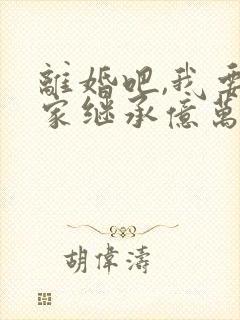 離婚吧,我要
家继承億萬
胡偉濤